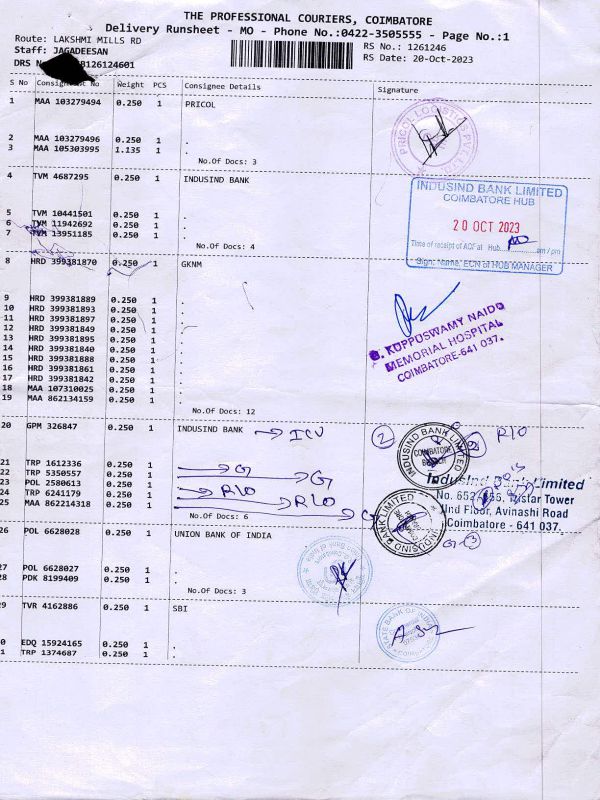 THE PROFESSIONAL COURIERS, COIMBATORE
Delivery Runsheet - MO - Phone No.:0422-3505555 - Page No.:1
Route: LAKSHMI MILLS RD
RS No.: 1261246
Staff: JAGADEESAN
RS Date: 20-Oct-2023
DRS B126124601
S No Consignment No Weight PCS Consignee Details Signature
1 MAA 103279494 0.250 1 PRICOL
2 MAA 103279496 0.250 1 .
3 MAA 105303995 1.135 1 .
No.Of Docs: 3
PRICOL LOGISTICS PVT LTD
4 TVM 4687295 0.250 1 INDUSIND BANK
5 TVM 10441501 0.250 1 .
6 TVM 11942692 0.250 1 .
7 TVM 13951185 0.250 1 .
No.Of Docs: 4
INDUSIND BANK LIMITED
COIMBATORE HUB
20 OCT 2023
Time of receipt of ACF at Hub am / pm
Sign. Name, ECN of HUB MANAGER
8 HRD 399381870 0.250 1 GKNM
9 HRD 399381889 0.250 1 .
10 HRD 399381893 0.250 1 .
11 HRD 399381897 0.250 1 .
12 HRD 399381849 0.250 1 .
13 HRD 399381895 0.250 1 .
14 HRD 399381840 0.250 1 .
15 HRD 399381888 0.250 1 .
16 HRD 399381861 0.250 1 .
17 HRD 399381842 0.250 1 .
18 MAA 107310025 0.250 1 .
19 MAA 862134159 0.250 1 .
No.Of Docs: 12
G. KUPPUSWAMY NAIDU
MEMORIAL HOSPITAL
COIMBATORE-641 037.
20 GPM 326847 0.250 1 INDUSIND BANK → ICU
21 TRP 1612336 0.250 1 . → G
22 TRP 5350557 0.250 1 . → G
23 POL 2580613 0.250 1 . → R/O
24 TRP 6241179 0.250 1 . → R/O
25 MAA 862214318 0.250 1 . → G
No.Of Docs: 6
2 R/O
INDUSIND BANK LIMITED
COIMBATORE
BRANCH
IndusInd Bank Limited
Tristar Tower
IInd Floor, Avinashi Road
Coimbatore - 641 037.
INDUSIND BANK LIMITED
G 3
26 POL 6628028 0.250 1 UNION BANK OF INDIA
27 POL 6628027 0.250 1 .
28 PDK 8199409 0.250 1 .
No.Of Docs: 3
29 TVR 4162886 0.250 1 SBI
0 EDQ 15924165 0.250 1 .
1 TRP 1374687 0.250 1 .
STATE BANK OF INDIA
COIMBATORE